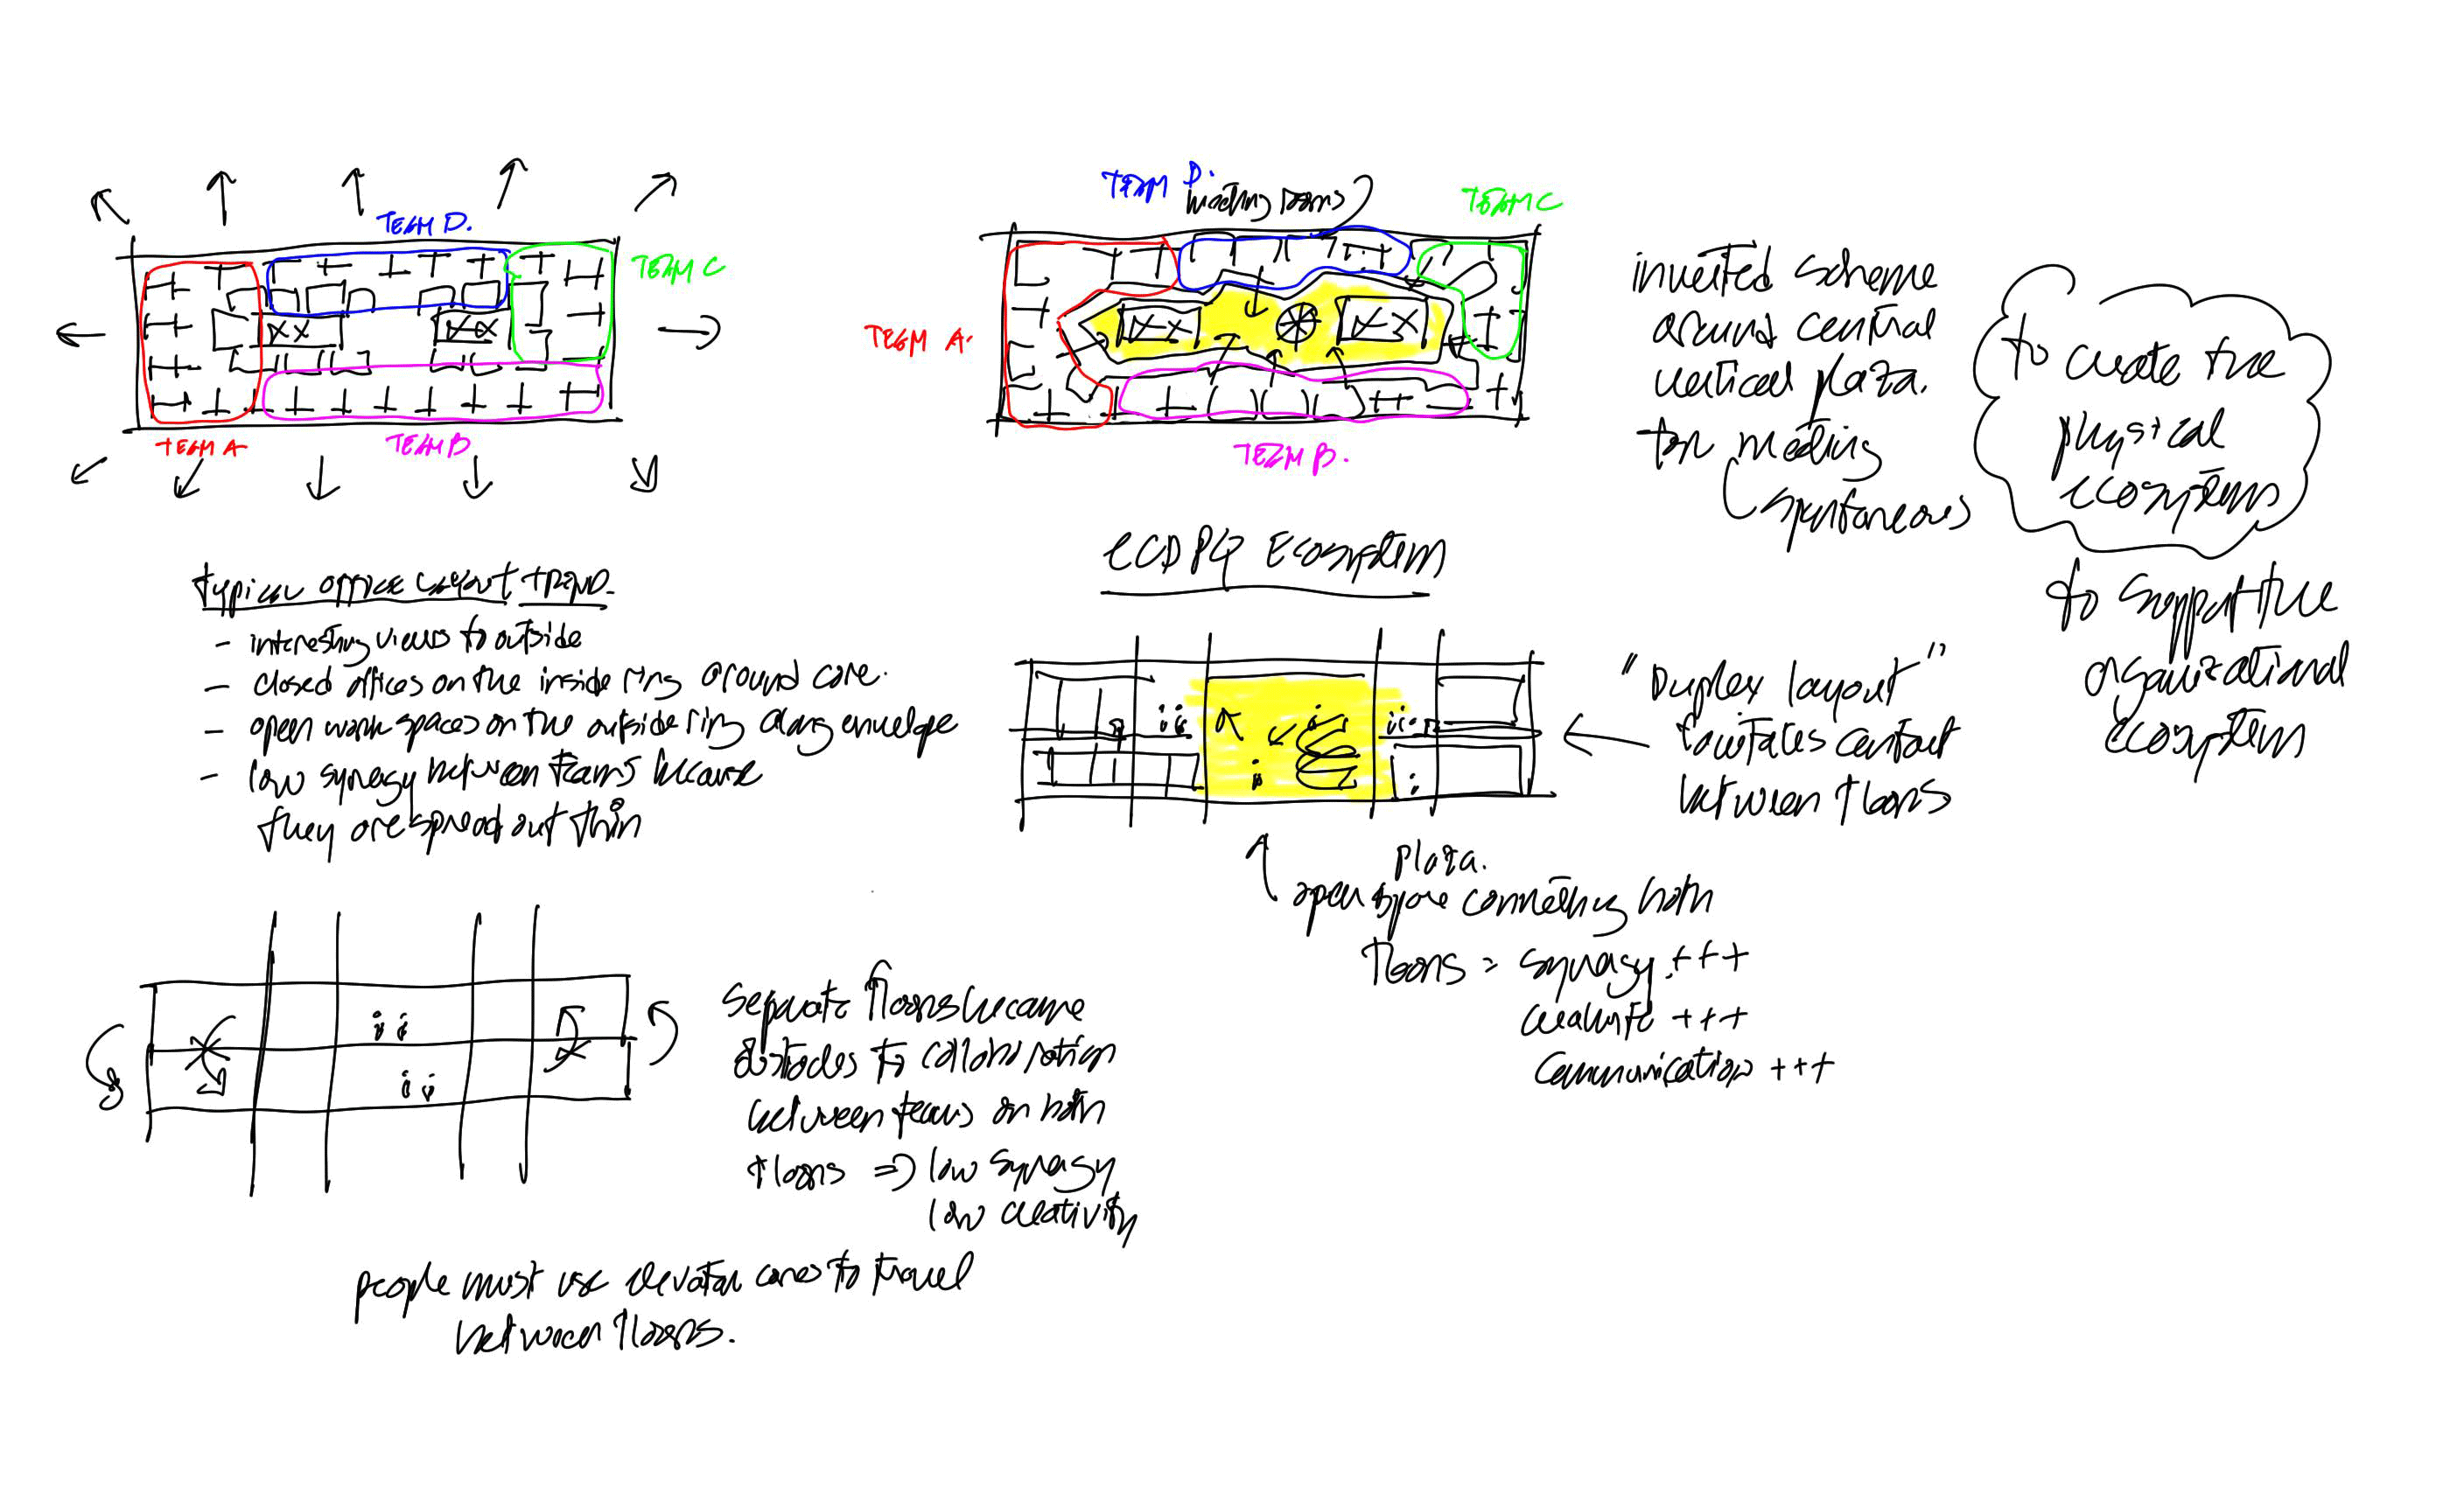 TEAM D.
TEAM C
TEAM A
TEAM B
typical office layout trend.
- interesting views to outside
- closed offices on the inside ring around core.
- open work spaces on the outside ring along envelope
- low synergy between teams because
they are spread out thin
separate floors became
obstacles to collaboration
between teams on both
floors => low synergy
low creativity
people must use elevator cores to travel
between floors.
TEAM D.
meeting rooms
TEAM C
TEAM A.
TEAM B.
inverted scheme
around central
vertical plaza.
for meeting
spontaneous
Ecosystem
"Duplex layout"
facilitates contact
between floors
plaza.
open space connecting both
floors = synergy +++
creativity +++
communication +++
to create the
physical
ecosystem
to support the
organizational
ecosystem